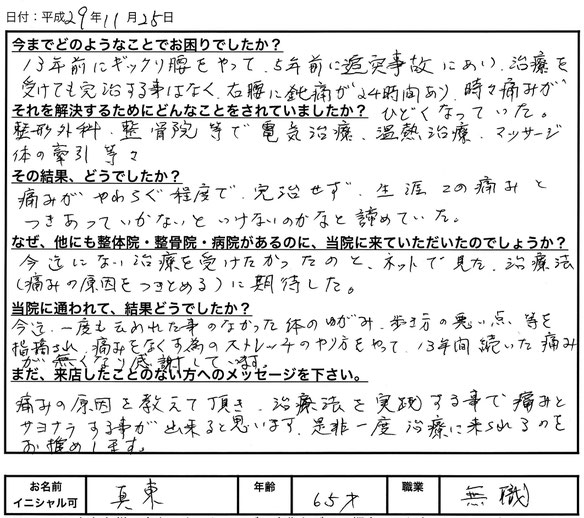 日付：平成29年11月25日
今までどのようなことでお困りでしたか？
13年前にギックリ腰をやって、5年前に追突事故にあい、治療を
受けても完治する事はなく、右腰に鈍痛が24時間あり、時々痛みが
ひどくなっていた。
それを解決するためにどんなことをされていましたか？
整形外科、整骨院等で電気治療、温熱治療、マッサージ
体の牽引等々
その結果、どうでしたか？
痛みがやわらぐ程度で、完治せず、生涯この痛みと
つきあっていかないといけないのかなと諦めていた。
なぜ、他にも整体院・整骨院・病院があるのに、当院に来ていただいたのでしょうか？
今迄にない治療を受けたかったのと、ネットで見た、治療法
(痛みの原因をつきとめる)に期待した。
当院に通われて、結果どうでしたか？
今迄、一度も云われた事のなかった体のゆがみ、歩き方の悪い点、等を
指摘され、痛みをなくす為のストレッチのやり方をやって、13年間続いた痛み
が無くなり感謝しています。
まだ、来店したことのない方へのメッセージを下さい。
痛みの原因を教えて頂き、治療法を実践する事で痛みと
サヨナラする事が出来ると思います、是非一度治療に来られるのを
お推めします。
お名前
イニシャル可
真東
年齢
65才
職業
無職